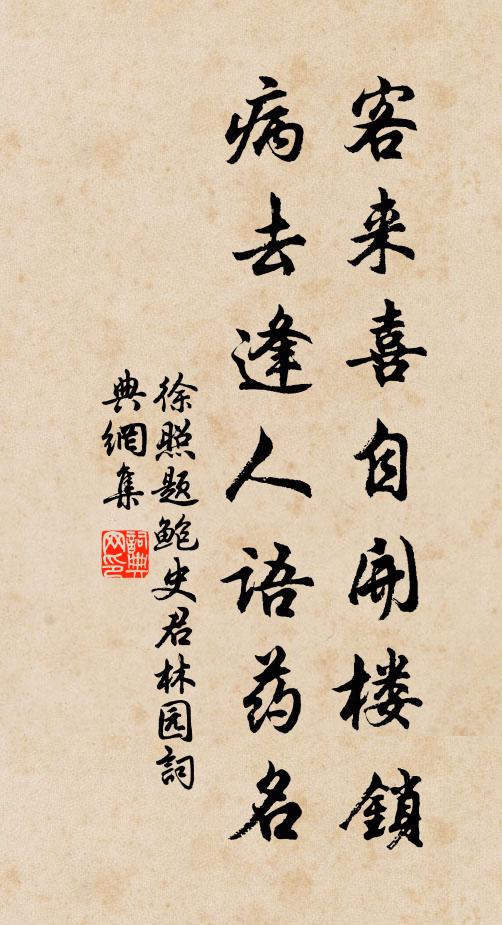 客来喜自开楼鎖
病去逢人语药名
徐照题鲍史君林园詞
典網集
詞典
网印